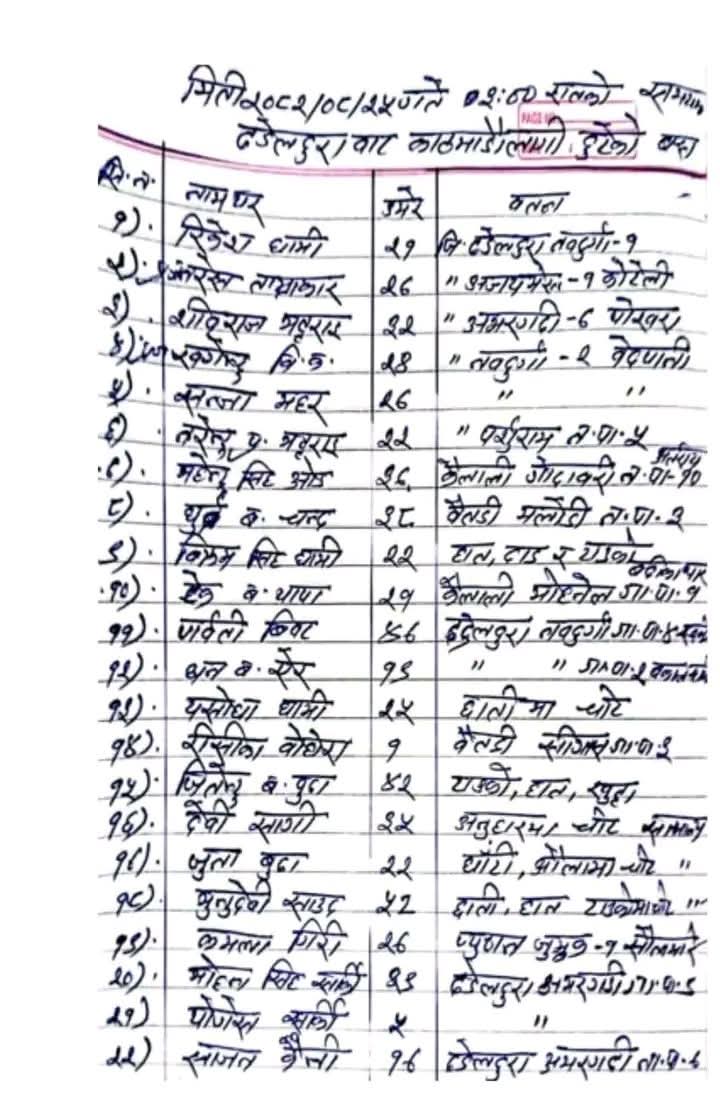 मिती २०८२/०८/२५ गते ०२:०० रातको समयमा
डडेलधुरा बाट काठमाडौं लागी छुटेको बस
PAGE NO
सि.नं. नाम थर उमेर वतन
१). धामी २१ जि. डडेलधुरा नवदुर्गा-१
२). ताम्राकार २६ " अजयमेरु-१ कोटेली
३). शिवराज भट्टराई ३२ " अमरगढी-६ पोखरा
४). वि.क. २४ " नवदुर्गा-२ वेदपानी
५). महर २६ " "
६). नरेन्द्र प्र. भट्टराई २२ " पर्शुराम न.पा. ५
७). महेन्द्र सिंह ओड २६ कैलाली गोदावरी न.पा-१०
८). ब. चन्द ३८ बैतडी न.पा. २
९). विक्रम सिंह धामी २२ हात, र टाउको
१०). टेक ब. थापा २१ कैलाली मोहन्याल गा.पा. १
११). पार्वती विष्ट ४६ डडेलधुरा नवदुर्गा गा.पा. ४
१२). धन ब. १९ " " गा.पा. २
१३). यसोधा धामी २५ छाती मा चोट
१४). वोहोरा १ बैतडी सीगास गा.पा ३
१५). जितेन्द्र ब. बुढा ४२ टाउको, हात, खुट्टा
१६). देवी सार्की ३५ अनुहारमा चोट सामान्य
१७). बुढा २२ घाँटी, चोट "
१८). साउद ५२ छाती, हात "
१९). कमला गिरी २६ प्युठान
२०). मोहन सिंह सार्की ४३ डडेलधुरा अमरगढी
२१) योगेस सार्की ५ "
२२) १६ डडेलधुरा अमरगढी